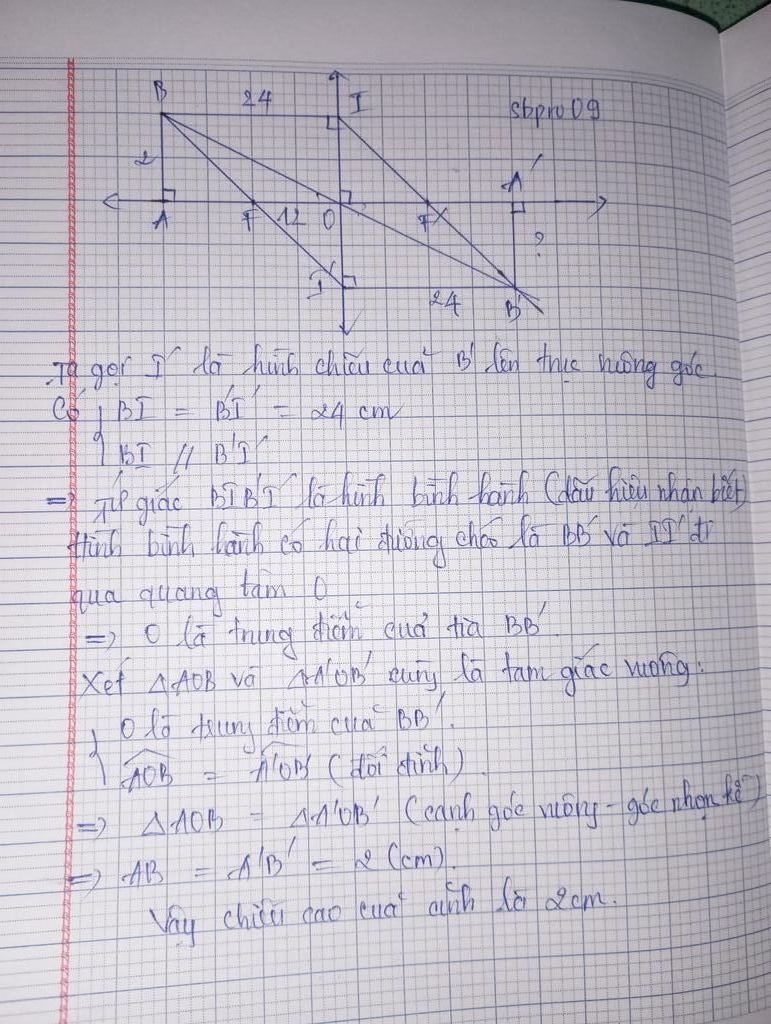 B 24 I sbpro 09
2 A'
A F 12 O F' ?
I' 24 B'
Ta gọi I' là hình chiếu của B' lên trục vuông góc.
Có { BI = B'I' = 24 cm
BI // B'I'
=> Tứ giác BIB'I' là hình bình hành (dấu hiệu nhận biết)
Hình bình hành có hai đường chéo là BB' và II' đi
qua quang tâm O
=> O là trung điểm của tia BB'.
Xét △AOB và △A'OB' cùng là tam giác vuông:
{ O là trung điểm của BB'.
AOB = A'OB' (đối đỉnh)
=> △AOB = △A'OB' (cạnh góc vuông - góc nhọn kề)
=> AB = A'B' = 2 (cm).
Vậy chiều cao của ảnh là 2cm.